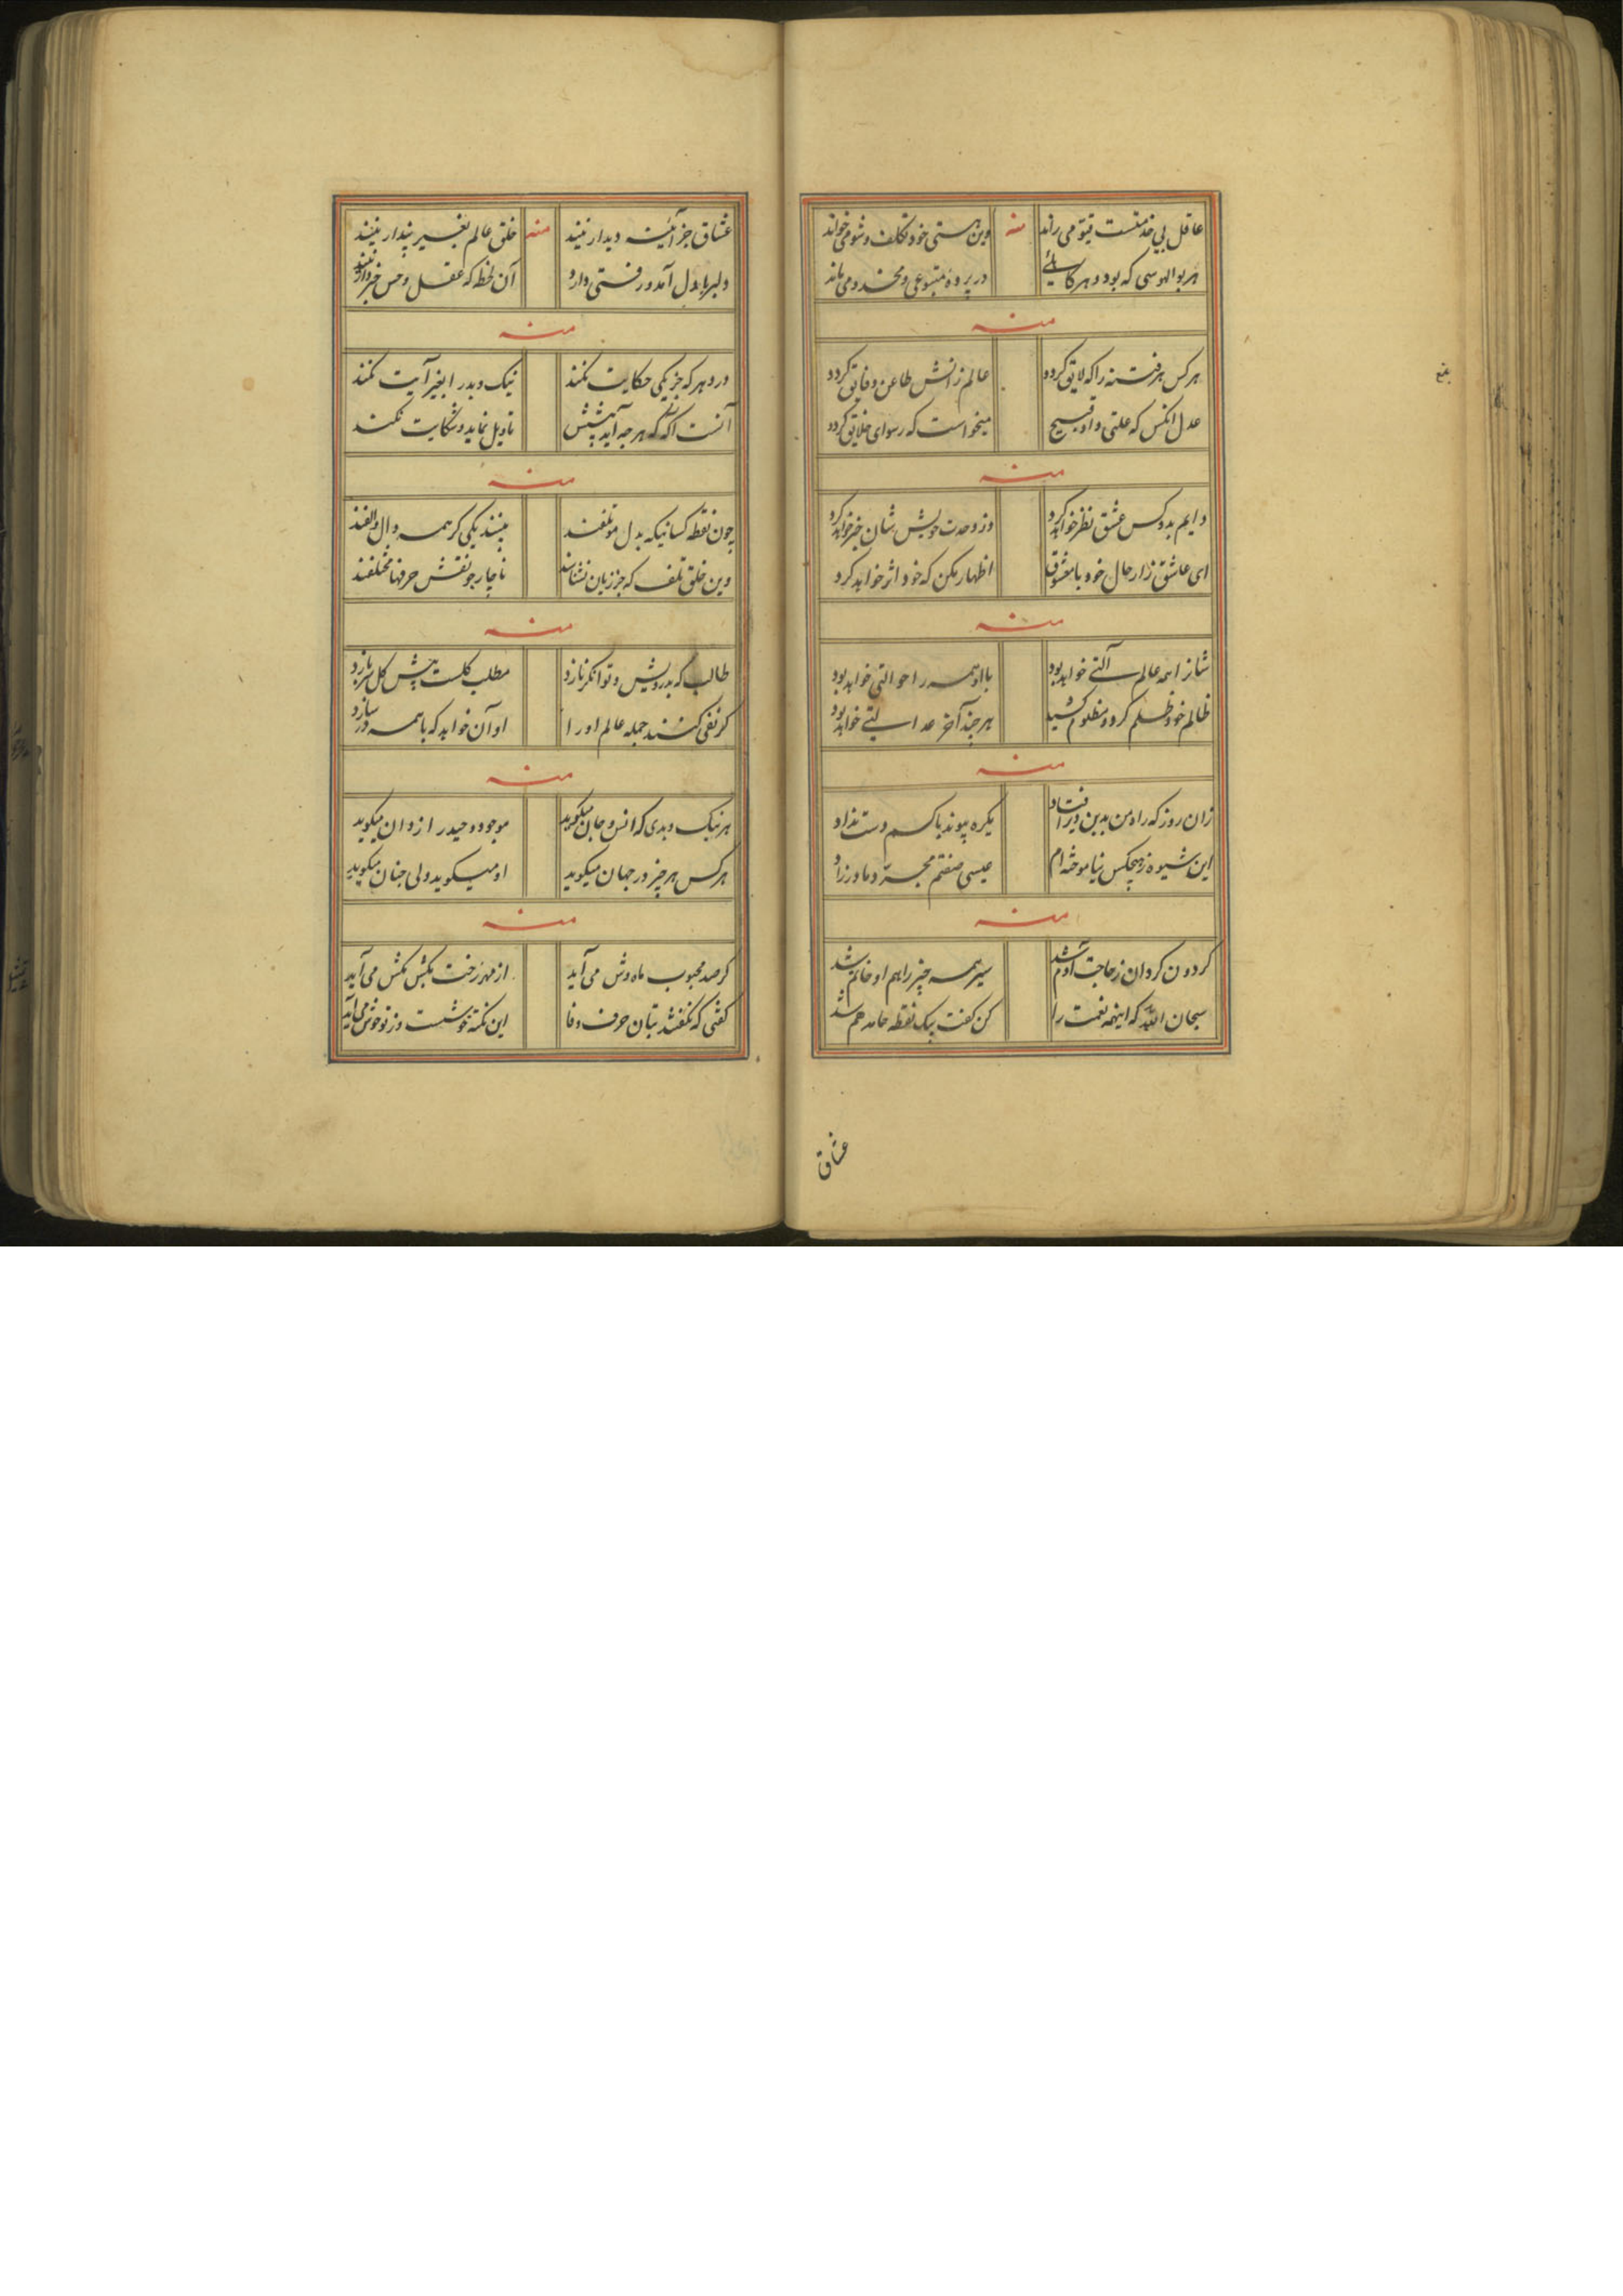 عاقل بی خدمتست قیومی راند
وین هستی خود تکلف و شومی خواند
منه
هر بو الهوسی که بود و هر کاسه
در پرده متبوعی و مخدومی ماند
منه
هر کس هر فتنه را که لایق کردد
عالم زانش طاعن و فایق کردد
عدل انکس که علتی داد قبیح
میخواست که رسوای خلایق کردد
منه
دایم بدو کس عشق نظر خواهد کرد
وز وحدت خویش شان خبر خواهد کرد
ای عاشق زار حال خود با معشوق
اظهار مکن که خود اثر خواهد کرد
منه
شانرا همه عالم آلتی خواهد بود
با او همه را حوالتی خواهد بود
ظالم خود ظلم کرد و مظلوم کشید
هر چند آخر عدالتی خواهد بود
منه
زان روز که راه من بدین دیر افتاد
یکره پیوند با کسم دست نداد
این شیوه ز هیچکس نیاموخته ام
عیسی صفتم مجرد و مادرزاد
منه
کردون کردان ز حاجت آدم شد
سیر همه چیز را هم او خاتم شد
سبحان الله که اینهمه نعمت را
کن کفت بیک نقطه حامد هم شد
عشاق
عشاق جز آئینه دیدار نیند
خلق عالم بغیر پندار نیند
منه
دلبر با دل آمد و رفتی دارد
آن لحظه که عقل و حس خبردار نیند
منه
در دهر که جز یکی حکایت نکنند
نیک و بد را بغیر آیت نکنند
آنست اکه که هر چه آید پیشش
تاویل نماید و شکایت نکند
منه
چون نقطه کسانیکه بدل موتلفند
بینند یکی کر همه دال و الفند
وین خلق تلف که جز زبان نشناسند
ناچار چو نقش حرفها مختلفند
منه
طالب که بدرویش و توانکر نازد
مطلب کلست پیش کل سر بازد
کر نفی کنند جمله عالم او را
او آن خواهد که با همه در سازد
منه
هر نیک و بدی که انس و جان میکوید
موجود وحید راز دان میکوید
هر کس هر چیز در جهان میکوید
او میکوید ولی چنان میکوید
منه
کر صد محبوب ماه وش می آید
از مهر رخت بکش مکش می آید
کفتی که نکفتند بتان حرف وفا
این نکته خوشست و ز تو خوش می آید